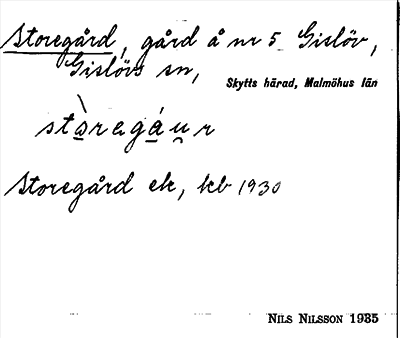 Storegård, gård å nr 5 Gislöv,
Gislövs sn,
Skytts härad, Malmöhus län
stòregáu̯r
Storegård ek, kb 1930
NILS NILSSON 1935